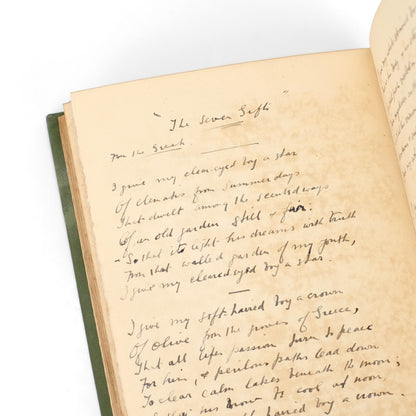 "The Seven Gifts"
From the Greek
I give my cleareyed boy a star
Of clematis from summer days
That dwelt among the scented ways
Of an old garden still & fair.
So that its light his dreams with truth
From that walled garden of my youth,
I give my cleareyed boy a star.
I give my soft-haired boy a crown
Of olive from the groves of Greece,
That all life's passion turn to peace
For him, & perilous paths lead down
To clear calm lakes beneath the moon;
his brow to cool at noon,
haired boy a crown.